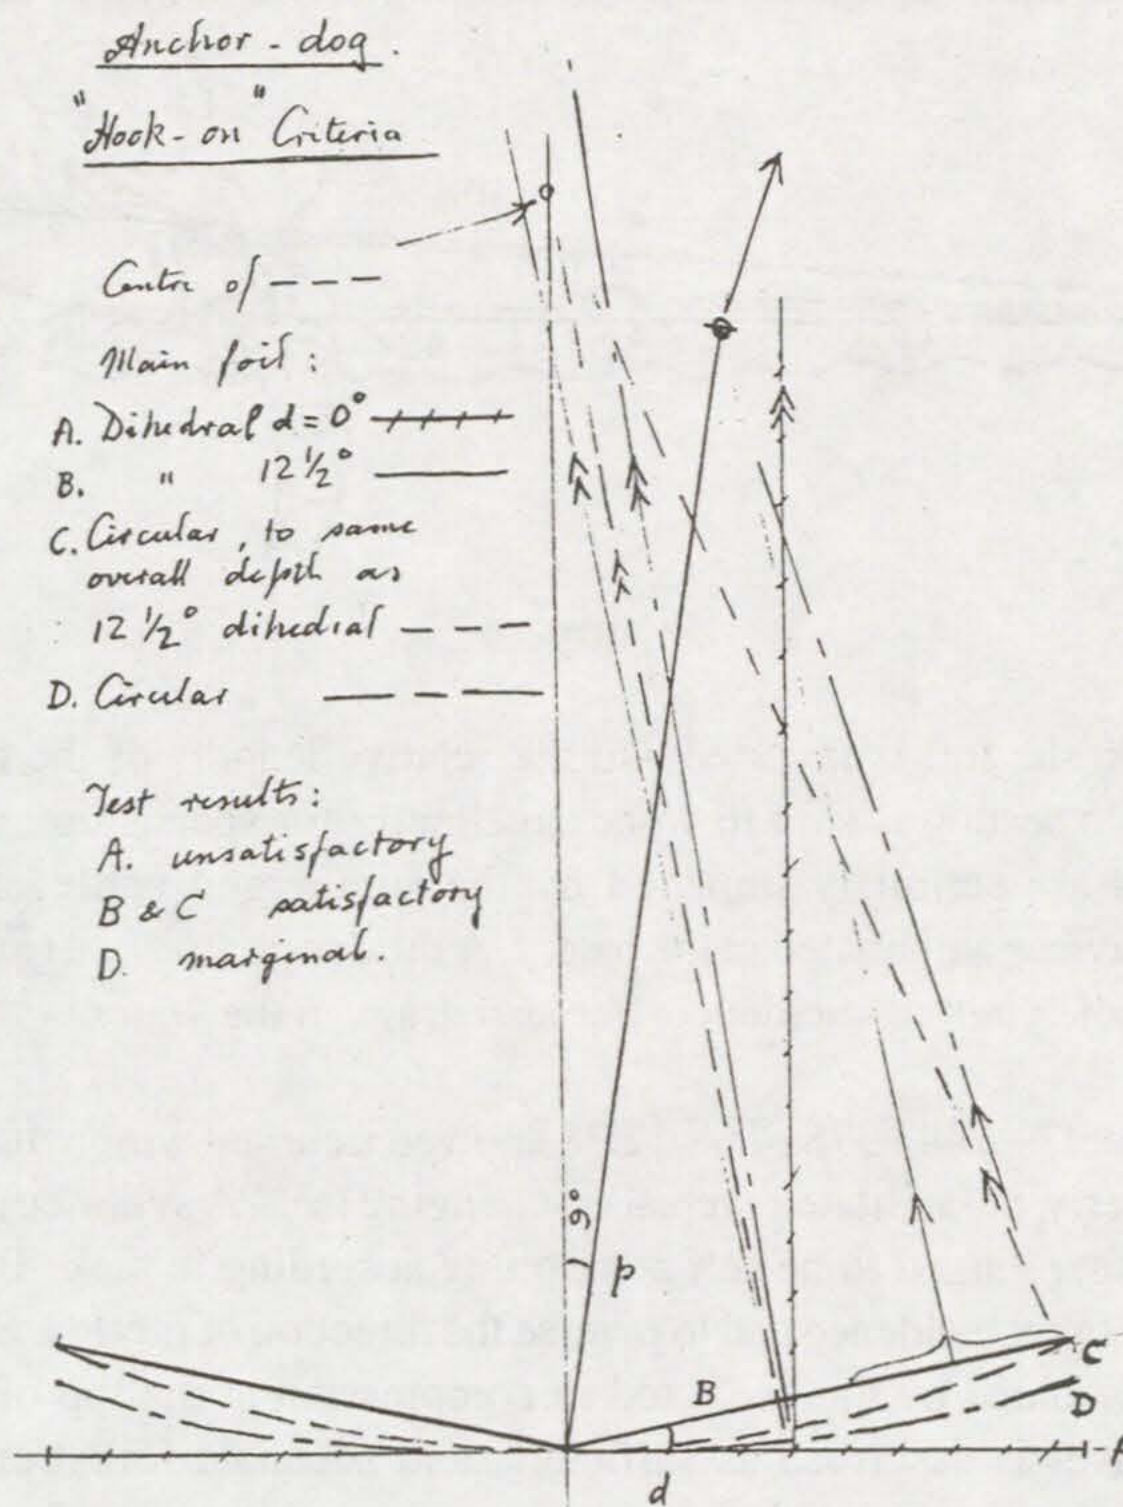 Anchor-dog.
"Hook-on" Criteria
Centre of ---
Main foil:
A. Dihedral d = 0°
B. " 12½°
C. Circular, to same
overall depth as
12½° dihedral ---
D. Circular
Test results:
A. unsatisfactory
B & C satisfactory
D. marginal.
9°
p
B
C
D
d